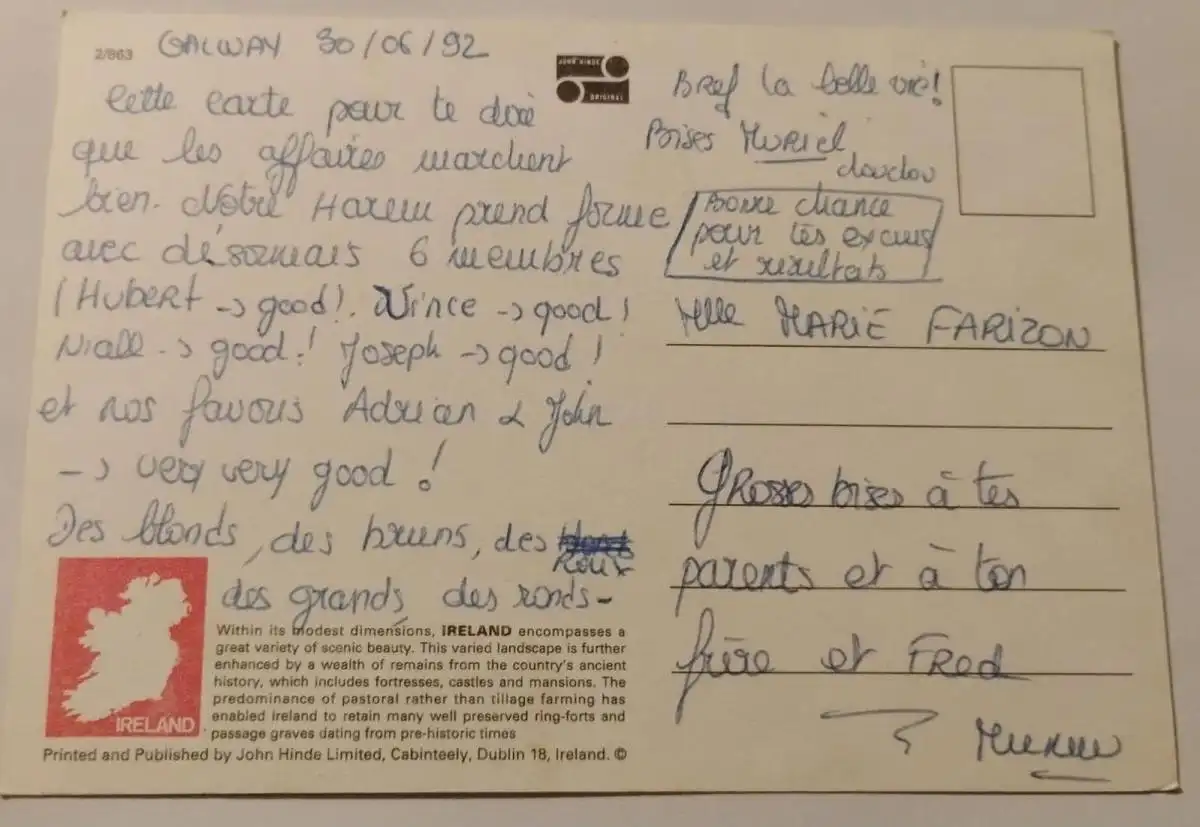 2/863
GALWAY 30/06/92
Cette carte pour te dire
que les affaires marchent
bien. Notre Harem prend forme
avec désormais 6 membres
(HUBERT -> good!. Vince -> good!
Niall -> good! Joseph -> good!
et nos favoris Adrian & John
-> very very good!
Des blonds, des bruns, des
Roux
des grands, des ronds-
JOHN HINDE
ORIGINAL
Bref la belle vie!
Bises MURIEL
doudou
Bonne chance
pour tes exams
et résultats
Melle MARIE FARIZON
GRosses bises à tes
parents et à ton
frère et FRed
IRELAND
Within its modest dimensions, IRELAND encompasses a
great variety of scenic beauty. This varied landscape is further
enhanced by a wealth of remains from the country's ancient
history, which includes fortresses, castles and mansions. The
predominance of pastoral rather than tillage farming has
enabled Ireland to retain many well preserved ring-forts and
passage graves dating from pre-historic times
Printed and Published by John Hinde Limited, Cabinteely, Dublin 18, Ireland. ©